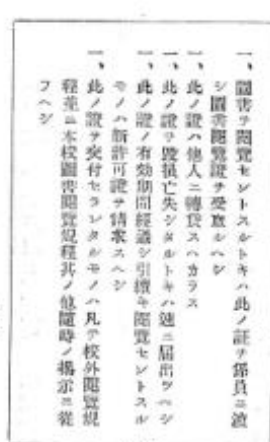 一、圖書ヲ閲覽セントスルトキハ此ノ証ヲ係員ニ渡
シ圖書閲覽證ヲ受取ルヘシ
一、此ノ證ハ他人ニ轉貸スヘカラス
一、此ノ證ヲ毀損亡失シタルトキハ速ニ届出ツヘシ
一、此ノ證ノ有効期間經過シ引續キ閲覽セントスル
モノハ新許可證ヲ請求スヘシ
一、此ノ證ヲ交付セラレタルモノハ凡テ校外閲覽規
程並ニ本校圖書閲覽規程其ノ他隨時ノ揭示ニ從
フヘシ